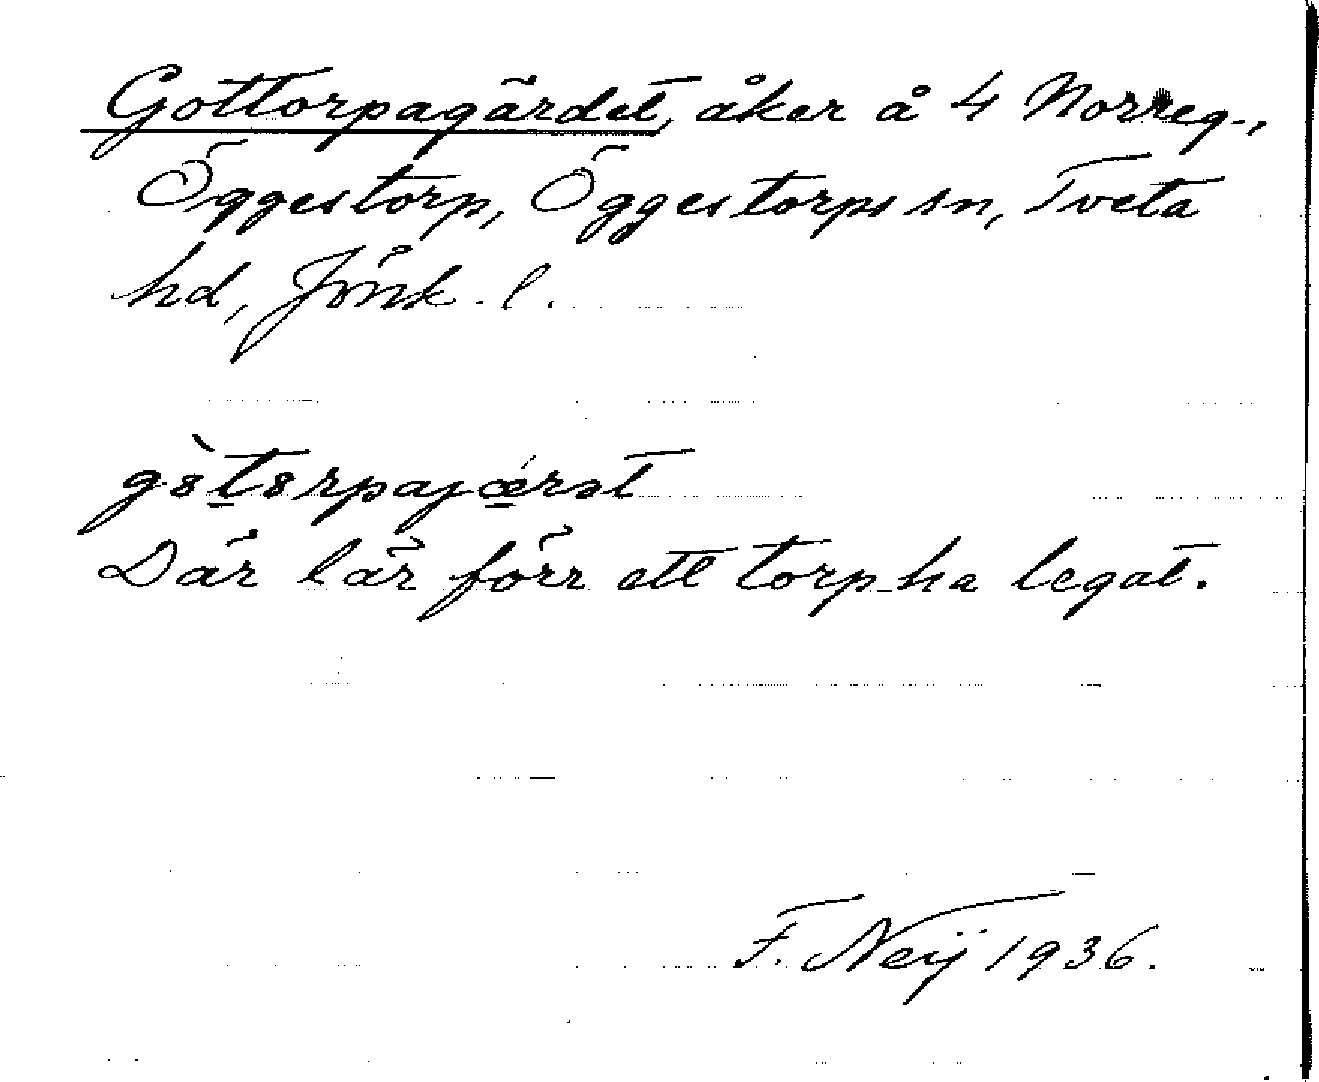 Gottorpagärdet, åker å 4 Norreg.,
Öggestorp, Öggestorps sn, Tveta
hd, Jönk. l.
gòtorpajærət
Där lär förr ett torp ha legat.
F. Neij 1936.